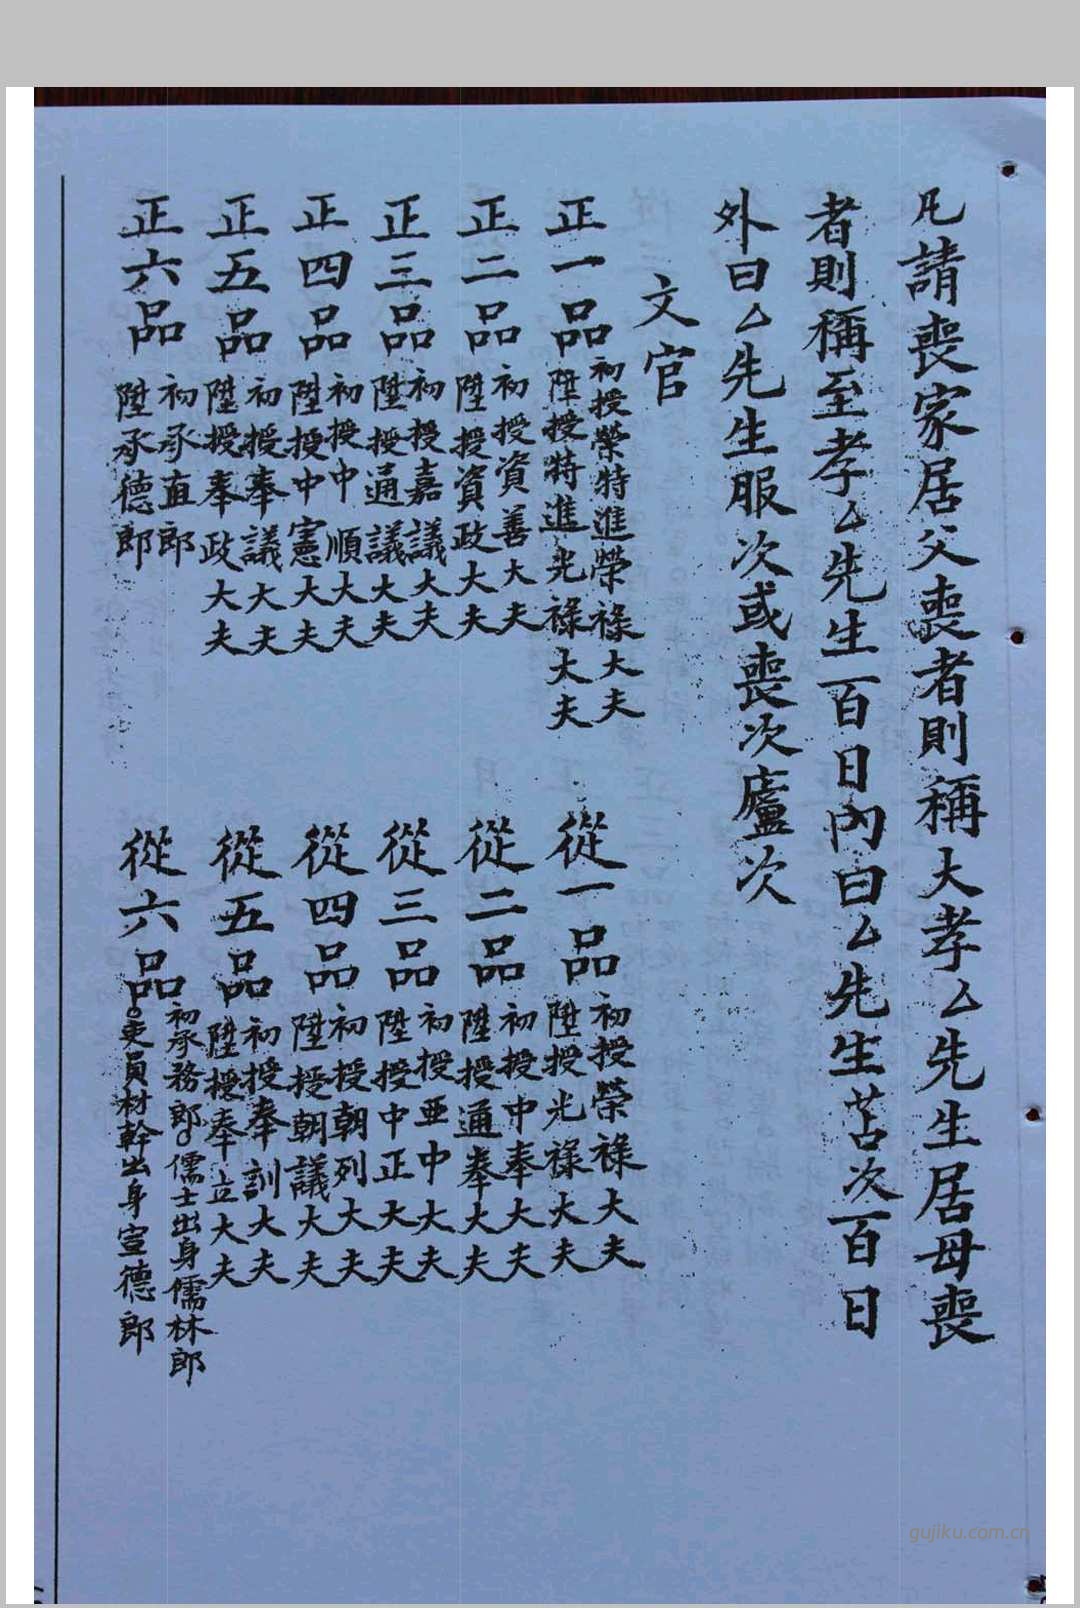 凡請喪家居父喪者則稱大孝厶先生居母喪
者則稱至孝厶先生百日內曰厶先生苫次百日
外曰厶先生服次或喪次廬次
文官
正一品 初授榮特進榮祿大夫
陞授特進光祿大夫
從一品 初授榮祿大夫
陞授光祿大夫
正二品 初授資善大夫
陞授資政大夫
從二品 初授中奉大夫
陞授通奉大夫
正三品 初授嘉議大夫
陞授通議大夫
從三品 初授亜中大夫
陞授中正大夫
正四品 初授中順大夫
陞授中憲大夫
從四品 初授朝列大夫
陞授朝議大夫
正五品 初授奉議大夫
陞授奉政大夫
從五品 初授奉訓大夫
陞授奉立大夫
正六品 初承直郎
陞承德郎
從六品 初承務郎○儒士出身儒林郎
○吏員材幹出身宣德郎
gujiku.com.cn